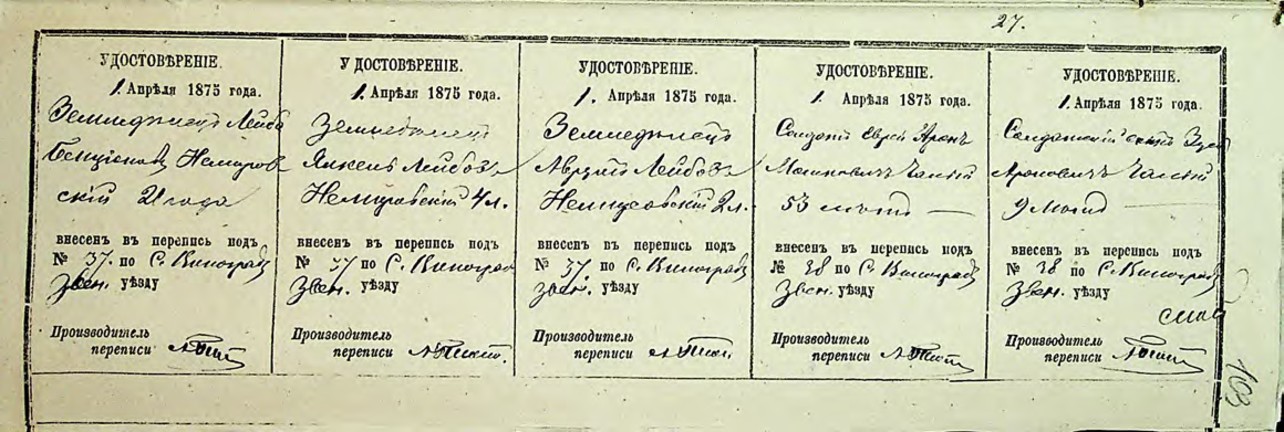 27.
УДОСТОВѢРЕНІЕ.
1. Апрѣля 1875 года.
Земледѣлецъ Лейба
Бенціоновъ Немиров
скій 21 года
внесенъ въ перепись подъ
№ 37. по С. Виноградъ
Звен. уѣзду
Производитель
переписи
УДОСТОВѢРЕНІЕ.
1. Апрѣля 1875 года.
Земледѣлецъ
Янкель Лейбов
Немировскій 4 л.
внесенъ въ перепись подъ
№ 37 по С. Виноград
Звен. уѣзду
Производитель
переписи
УДОСТОВѢРЕНІЕ.
1. Апрѣля 1875 года.
Земледѣлецъ
Лейбов
Немировскій 2 л.
внесенъ въ перепись подъ
№ 37. по С. Виноградъ
Звен. уѣзду
Производитель
переписи
УДОСТОВѢРЕНІЕ.
1. Апрѣля 1875 года.
Солдатъ Еврей Аронъ
Мошковичъ
53 лѣтъ
внесенъ въ перепись подъ
№ 38 по С. Виноградъ
Звен. уѣзду
Производитель
переписи
УДОСТОВѢРЕНІЕ.
1. Апрѣля 1875 года.
Солдатскій сынъ
Ароновичъ
9 лѣтъ
внесенъ въ перепись подъ
№ 38 по С. Виноградъ
Звен. уѣзду
Производитель
переписи
103